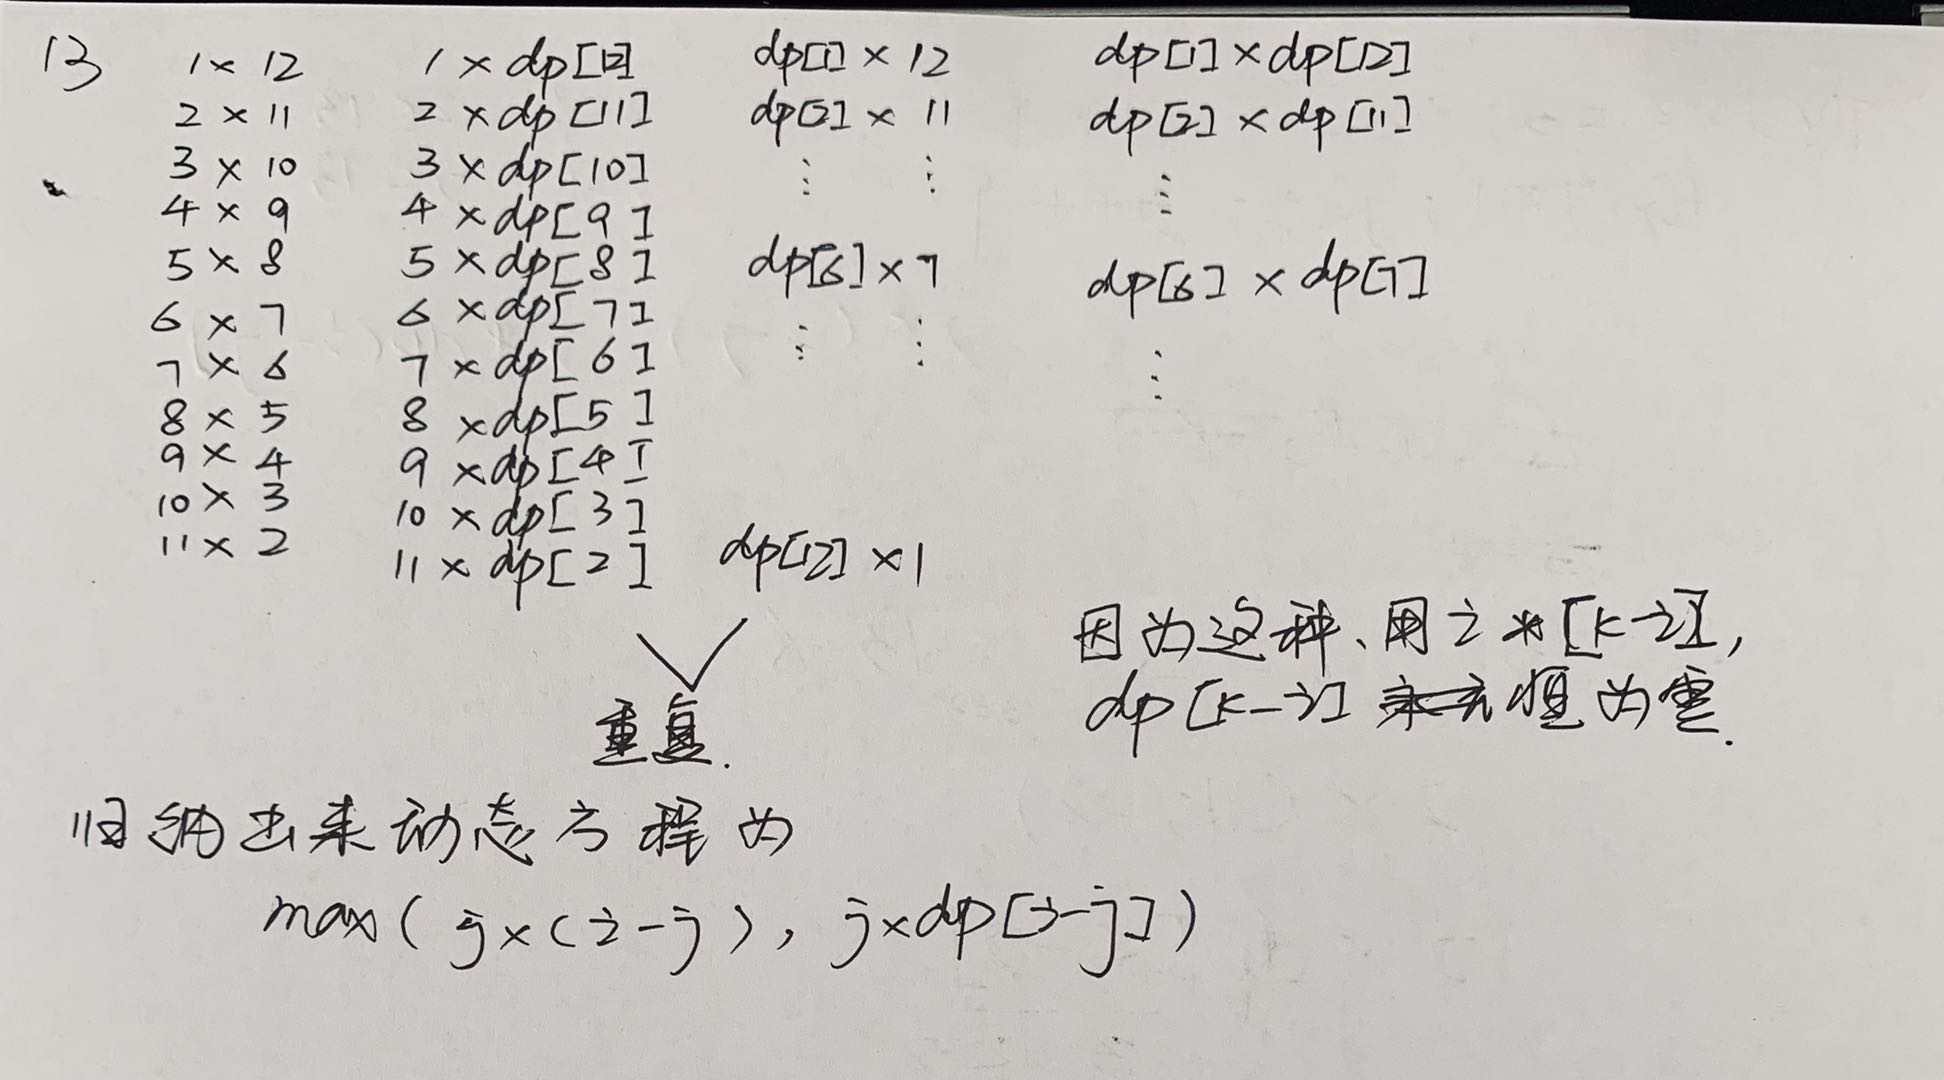 13 1 × 12 1 × dp[12] dp[1] × 12 dp[1] × dp[12]
2 × 11 2 × dp[11] dp[2] × 11 dp[2] × dp[11]
3 × 10 3 × dp[10] ⋮ ⋮ ⋮
4 × 9 4 × dp[9]
5 × 8 5 × dp[8] dp[6] × 7 dp[6] × dp[7]
6 × 7 6 × dp[7]
7 × 6 7 × dp[6] ⋮ ⋮ ⋮
8 × 5 8 × dp[5]
9 × 4 9 × dp[4]
10 × 3 10 × dp[3]
11 × 2 11 × dp[2] dp[12] × 1
重复.
因为这种、用i*[k-i],
dp[k-i] 恒为零.
归纳出来动态方程为
max( j×(i-j), j×dp[i-j])